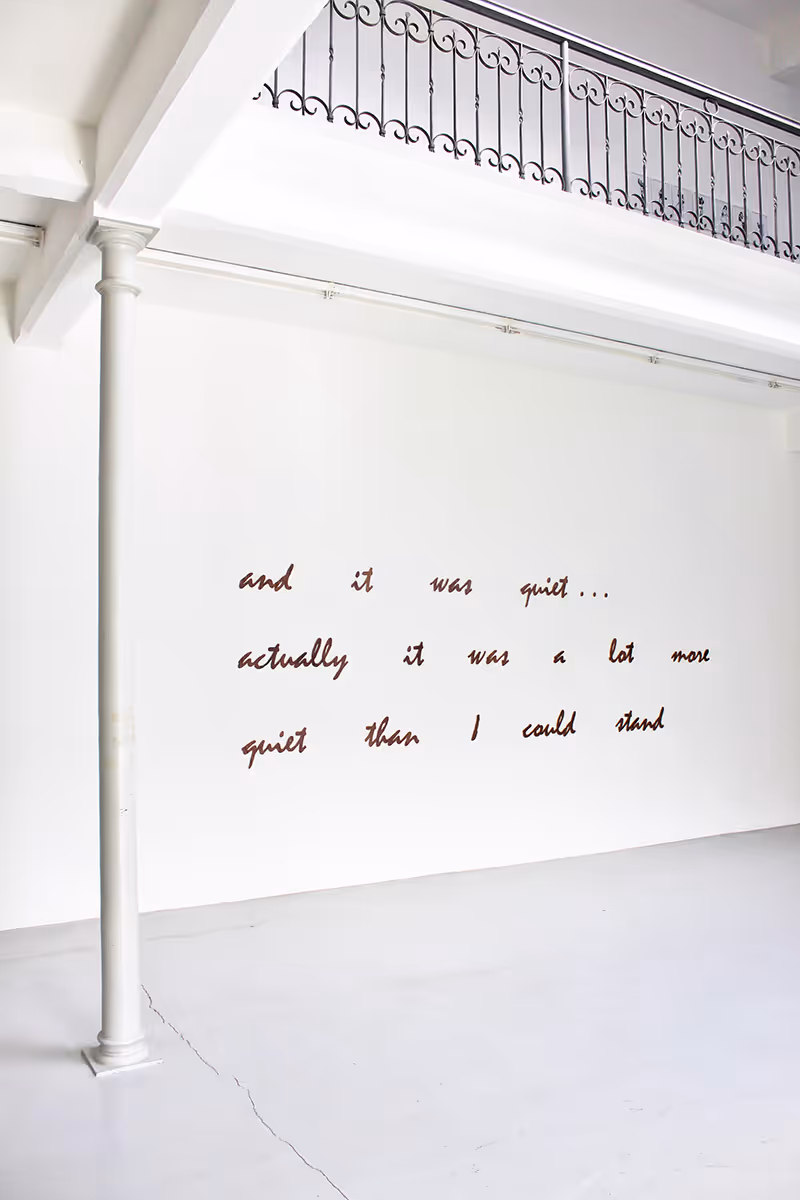 and it was quiet...
actually it was a lot more
quiet than I could stand